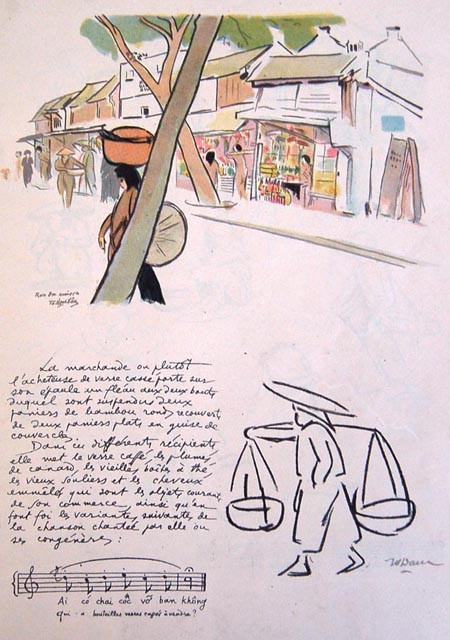 Rue
La marchande ou plutôt
l'acheteuse de verre cassé porte sur
son épaule un fléau aux deux bouts
duquel sont suspendus deux
paniers de bambou ronds recouverts
de deux paniers plats en guise de
couvercle.
Dans ces différents récipients
elle met le verre cassé, les plumes
de canard, les vieilles boîtes à thé
les vieux souliers et les cheveux
emmêlés qui sont les objets courants
de son commerce, ainsi qu'en
font foi les variantes suivantes de
la chanson chantée par elle ou
ses congénères :
Ai có chai cốc vỡ bán không
Qui - a bouteilles verres cassés à vendre ?